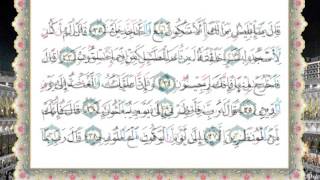 قَالَ يَٰٓإِبۡلِيسُ مَا لَكَ أَلَّا تَكُونَ مَعَ ٱلسَّٰجِدِينَ ٣٢ قَالَ لَمۡ أَكُن
لِّأَسۡجُدَ لِبَشَرٍ خَلَقۡتَهُۥ مِن صَلۡصَٰلٖ مِّنۡ حَمَإٖ مَّسۡنُونٖ ٣٣ قَالَ
فَٱخۡرُجۡ مِنۡهَا فَإِنَّكَ رَجِيمٞ ٣٤ وَإِنَّ عَلَيۡكَ ٱللَّعۡنَةَ إِلَىٰ يَوۡمِ
ٱلدِّينِ ٣٥ قَالَ رَبِّ فَأَنظِرۡنِيٓ إِلَىٰ يَوۡمِ يُبۡعَثُونَ ٣٦ قَالَ فَإِنَّكَ
مِنَ ٱلۡمُنظَرِينَ ٣٧ إِلَىٰ يَوۡمِ ٱلۡوَقۡتِ ٱلۡمَعۡلُومِ ٣٨ قَالَ رَبِّ بِمَآ